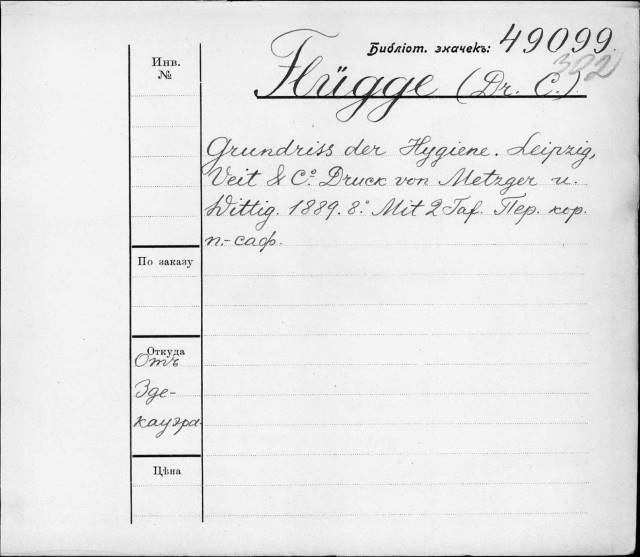 Библіот. значекъ: 49099.
392
Инв.
№
Flügge (Dr. C.).
Grundriss der Hygiene. Leipzig,
Veit & Co. Druck von Metzger u.
Wittig. 1889. 8.° Mit 2 Taf. Пер. кор.
п.-саф.
По заказу
Откуда
Отъ
Зде-
кауэра.
Цѣна